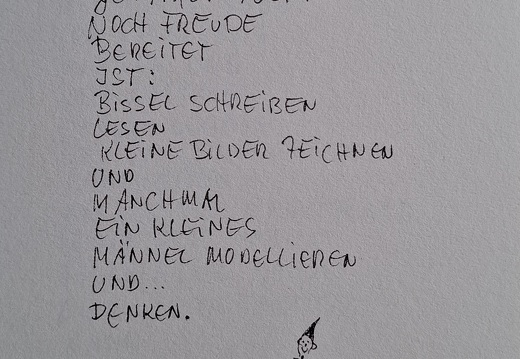 NOCH FREUDE
BEREITET
IST:
BISSEL SCHREIBEN
LESEN
KLEINE BILDER ZEICHNEN
UND
MANCHMAL
EIN KLEINES
MÄNNEL MODELLIEREN
UND...
DENKEN.